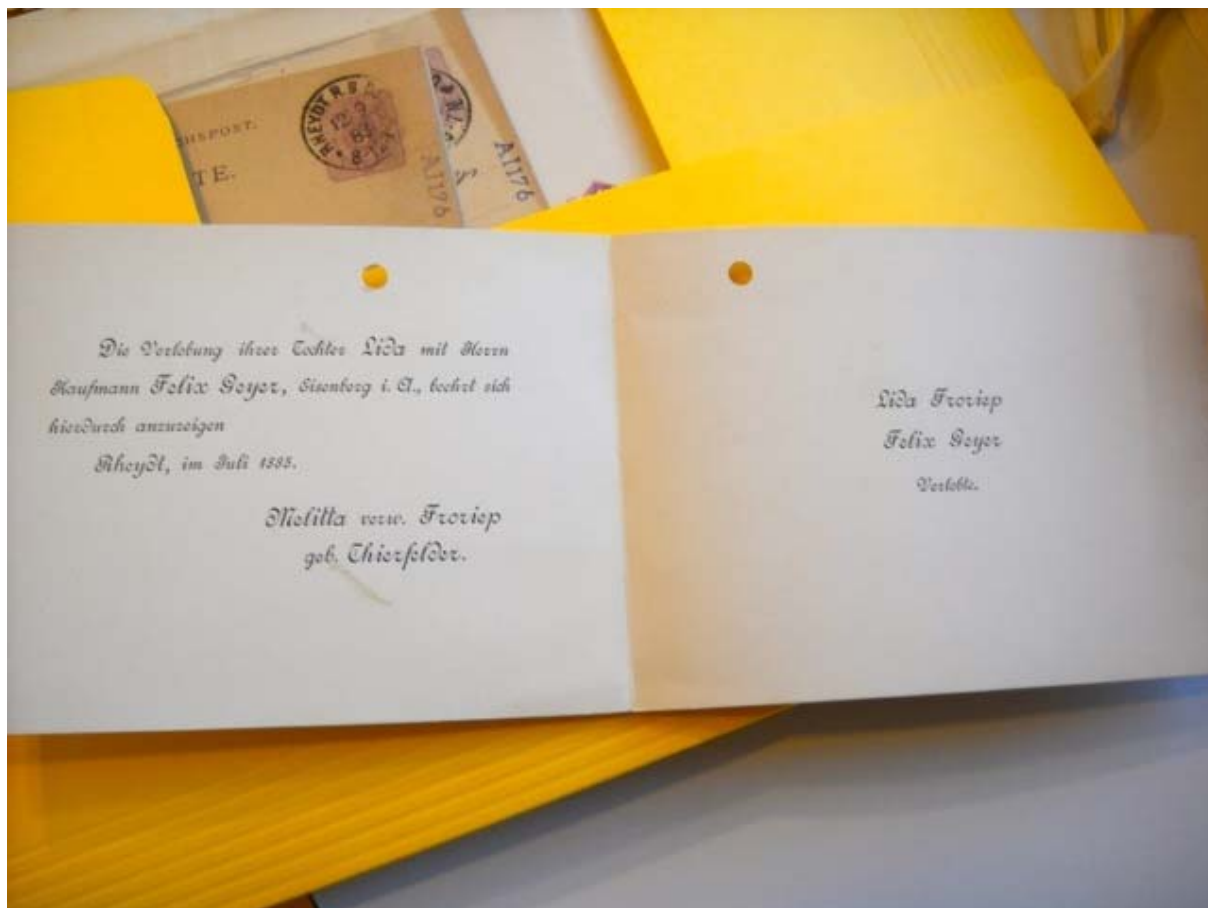 HSPOST.
TE.
RHEYDT
12
8
A1176
A1176
Die Verlobung ihrer Tochter Lida mit Herrn
Kaufmann Felix Geyer, Eisenberg i. A., beehrt sich
hierdurch anzuzeigen
Rheydt, im Juli 1885.
Melitta verw. Froriep
geb. Thierfelder.
Lida Froriep
Felix Geyer
Verlobte.